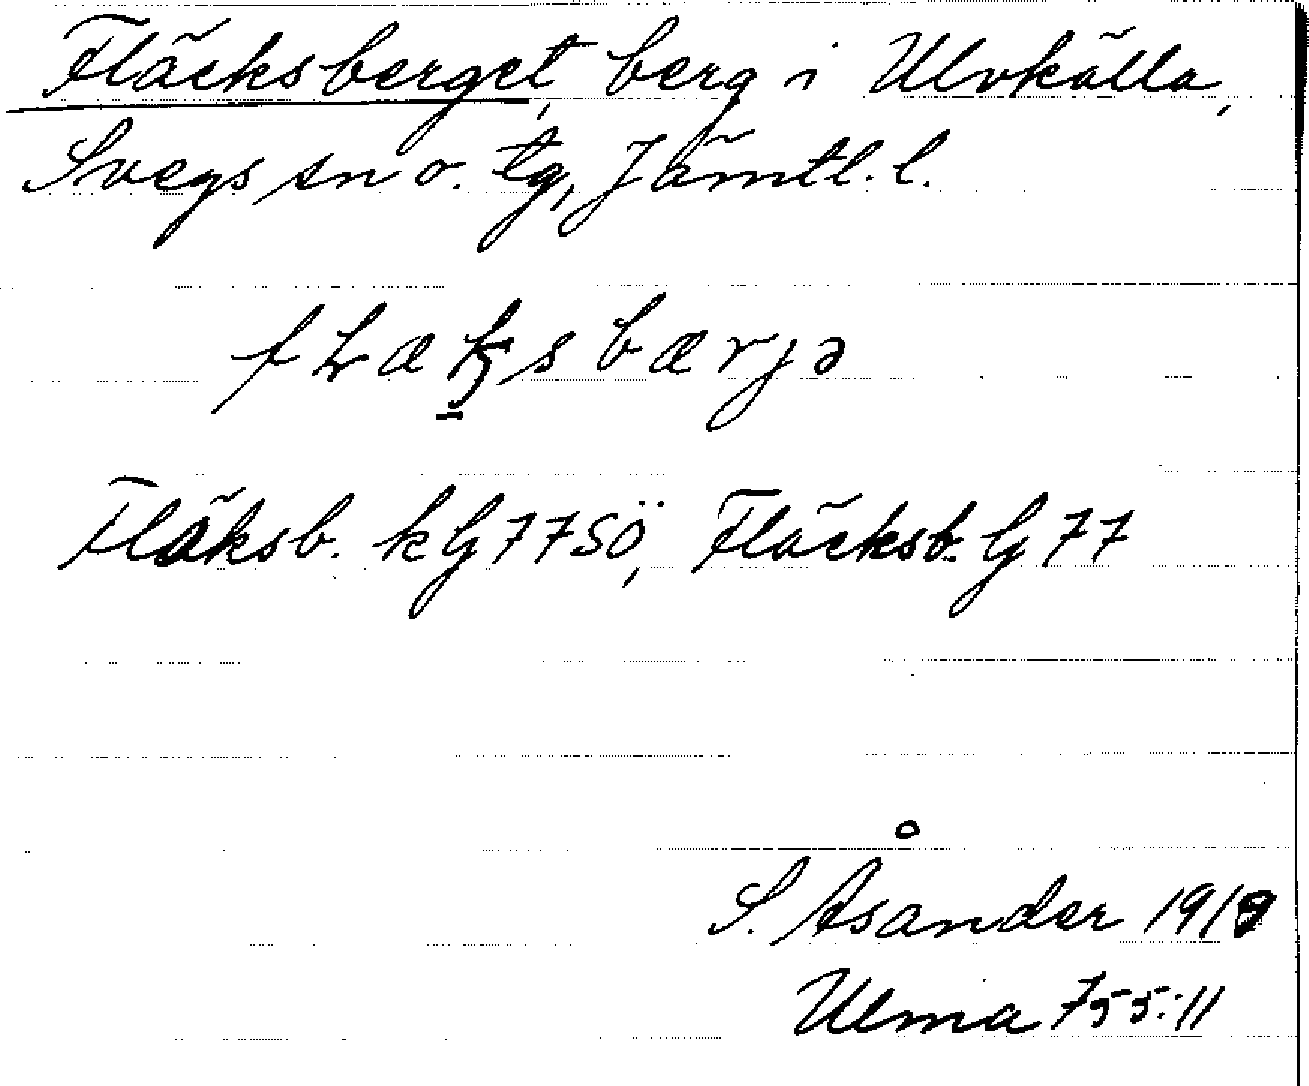 Fläcksberget, berg i Ulvkälla,
Svegs sn o. tg, Jämtl. l.
fLæksbærjə
Fläksb. kG77SÖ, Fläcksb. G77
S. Åsander 1919
Ulma 755:11